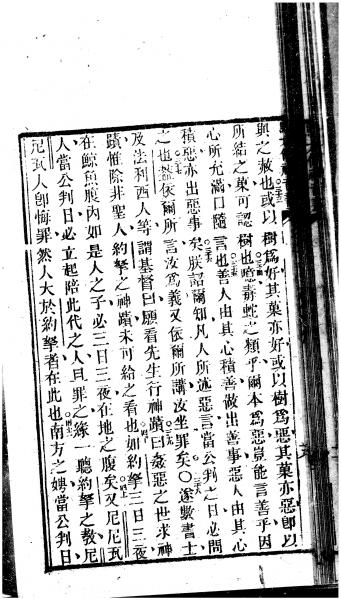 與之赦也或以樹爲好其菓亦好或以樹爲惡其菓亦惡卽以
所結之菓可認樹也噫毒蛇之類乎爾本爲惡豈能言善乎因
心所充滿口隨言也善人由其心積善做出善事惡人由其心
積惡亦出惡事矣朕詔爾知凡人所述惡言當公判之日必問
之也葢依爾所言汝爲義又依爾所講汝坐罪矣○遂數書士
及法利西人等謂基督曰願看先生行神蹟曰姦惡之世求神
蹟惟除非聖人約拏之神蹟未可給之看也如約拏三日三夜
在鯨魚腹內如是人之子必三日三夜在地之腹矣又尼尼瓦
人當公判日必立起陪此代之人且罪之緣一聽約拏之敎尼
尼瓦人卽悔罪然人大於約拏者在此也南方之娉當公判日